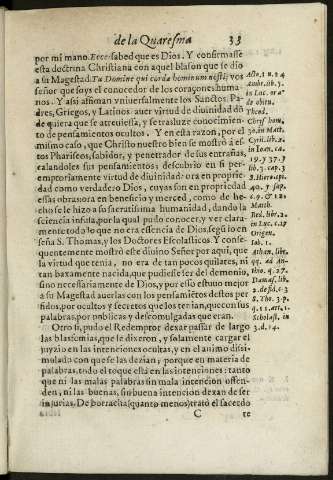 de la Quaresma 33
por mi mano. Ecce: sabed que es Dios. Y confirmasse
esta doctrina Christiana con aquel blason que se dio
a su Magestad. Tu Domine qui corda hominum nosti; vos
señor que soys el conocedor de los coraçones huma-
nos. Y assi afirman vniuersalmente los Sanctos Pa-
dres, Griegos, y Latinos auer virtud de diuinidad do
de quiera que se atrauiessa, y se trasluze conocimien-
to de pensamientos ocultos. Y en esta razon, por el
mismo caso, que Christo nuestro bien se mostró a es-
tos Phariseos, sabidor, y penetrador de sus entrañas,
calandoles sus pensamientos; descubrio en si per-
emptoriamente virtud de diuinidad: ora en proprie
dad como verdadero Dios, cuyas son en propriedad
essas obras: ora en beneficio y merced, como de he-
cho se le hizo a su sacratissima humanidad, dando la
sciencia infusa, por la qual pudo conocer, y ver clara-
mente todo lo que no era essencia de Dios, segū lo en
seña S. Thomas, y los Doctores Escolasticos. Y conse-
quentemente mostró este diuino Señor aqui, que
la virtud que tenia, no era de tan pocos quilates, ni
tan baxamente nacida, que pudiesse ser del demonio,
sino necessariamente de Dios, y por esso estuuo mejor
a su Magestad auerlas con los pensamientos destos per
fidos, por ocultos y secretos que los tenian, que con sus
palabras, por publicas y descomulgadas que eran.
Otro si, pudo el Redemptor dexar passar de largo
las blasfemias, que le dixeron, y solamente cargar el
juyzio en las intenciones ocultas, y en el animo dissi-
mulado con que se las dezian; porque en materia de
palabras, todo el toque está en las intenciones: tanto
que ni las malas palabras sin mala intencion offen-
den, ni las buenas, sin buena intencion dexan de ser
injurias. De borracha (quanto menos) trató el sacerdo
C te
Acto. 1 n. 24
Ambr. lib. 5.
in Luc. ora
de obitu.
Theod.
Chrys. hom.
30. in Matt.
Cyril. lib. 2.
in Ioan. ca.
19. y 37. 3
lib. 3. cap. 3
S. Hiero. cap.
40. 9 sup.
c. 9. & 12.
Matth.
Bed. lib. 2.
in Luc. c. 17
Origen.
Athan. libr.
qq. ad An-
tho. q. 27.
Damas. lib.
2. de fid. c. 3
S. Tho. 3. p.
q. 11. art. 1.
Scholast. in
3. d. 14.